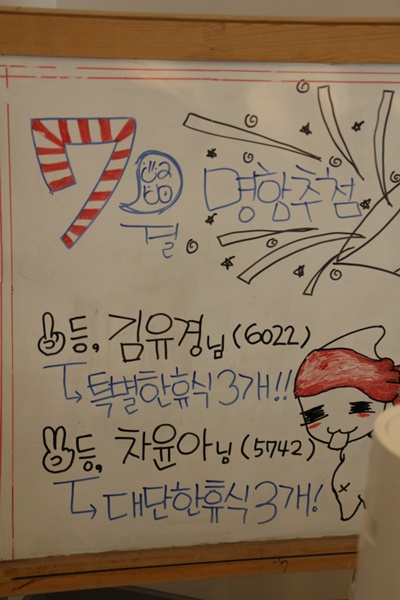 7월 명함추첨
등, 김유경님 (6022)
특별한휴식 3개!!
등, 차윤아님 (5742)
대단한휴식 3개!